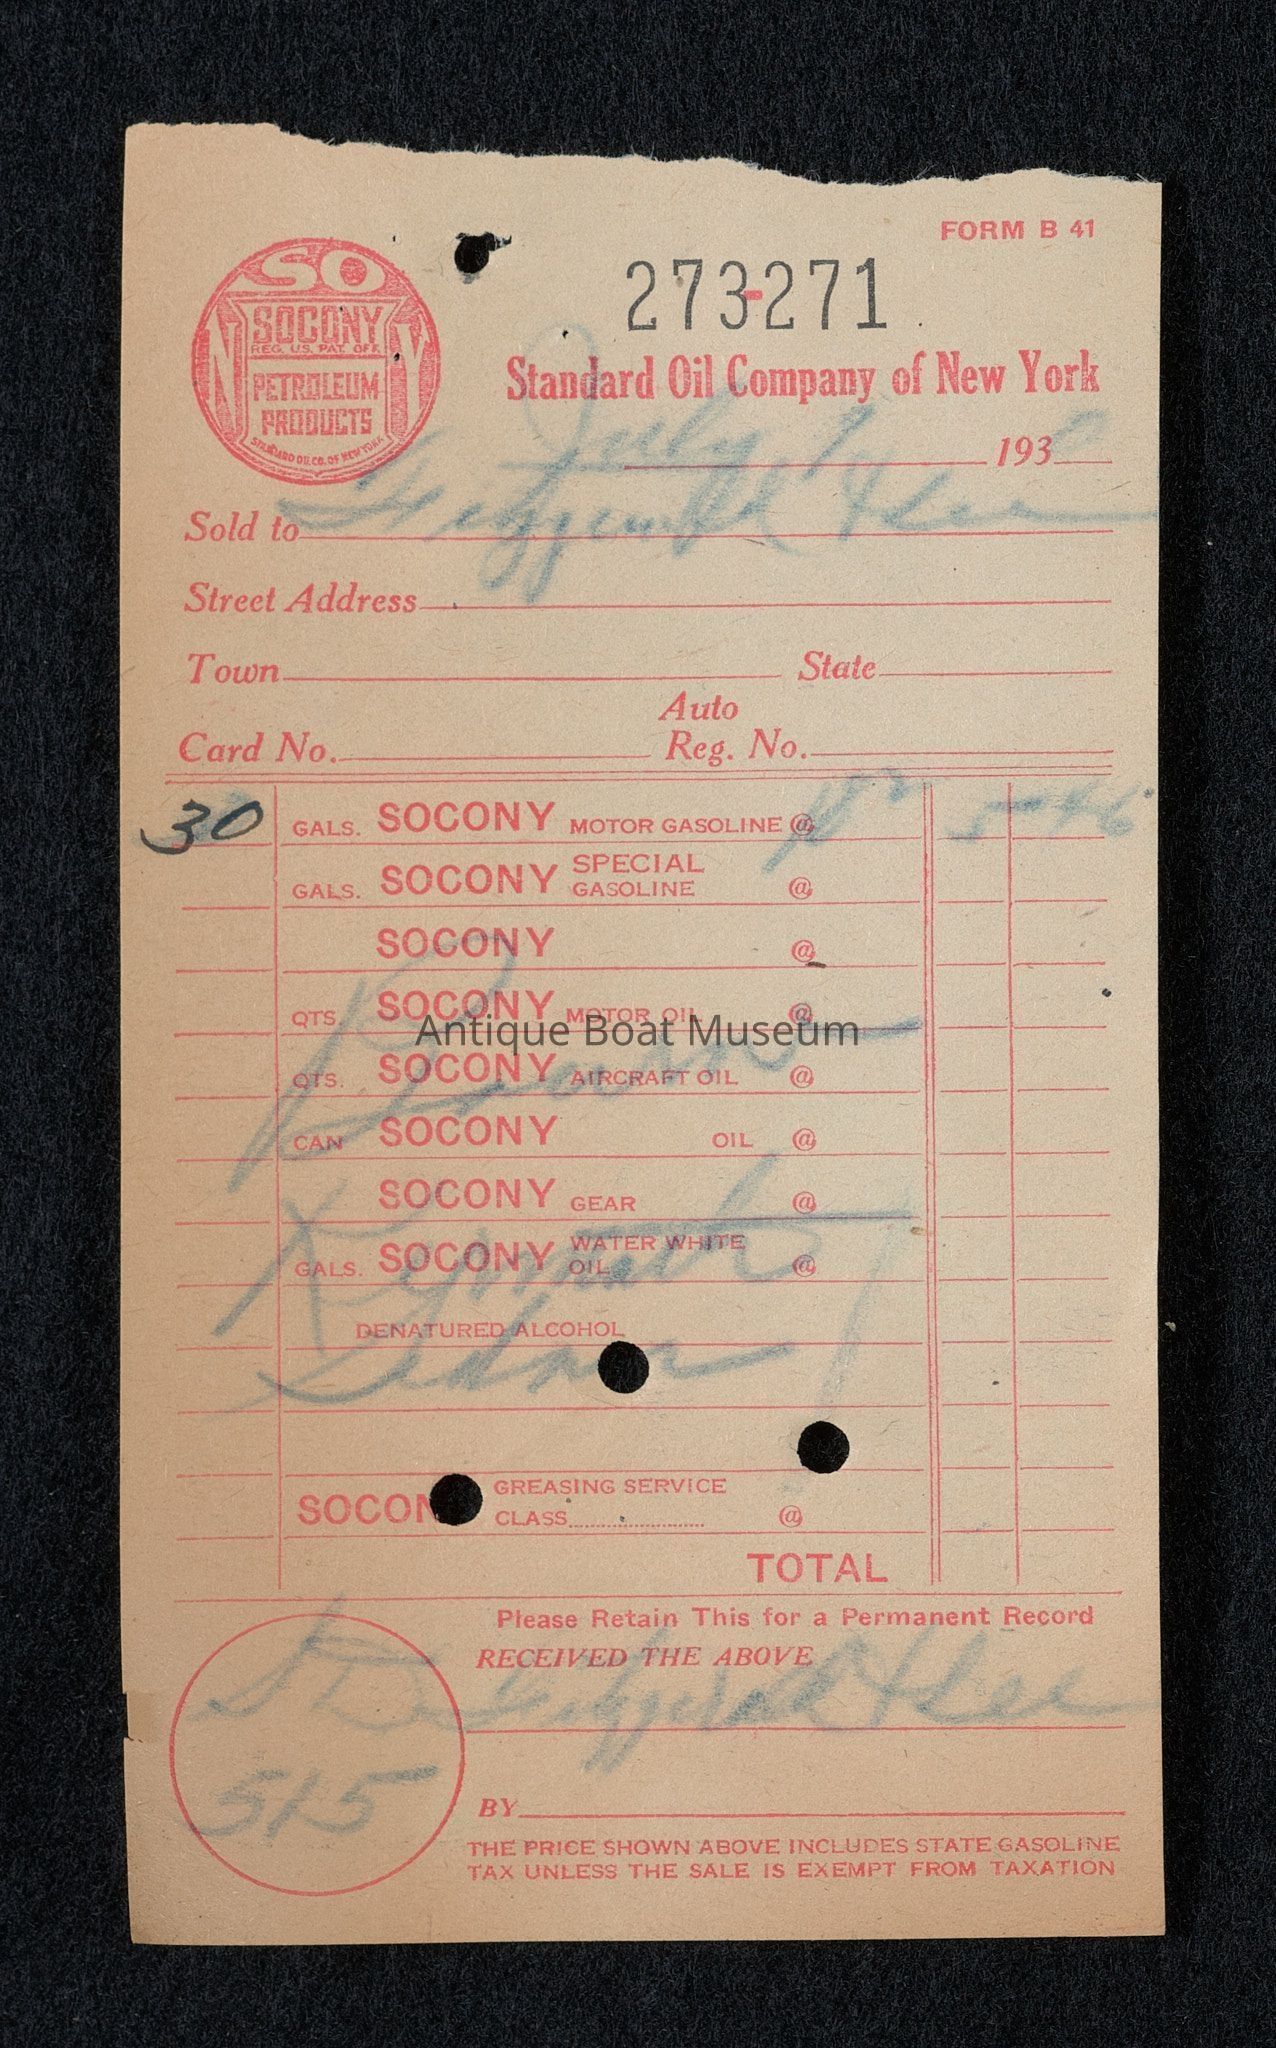 FORM B 41
SO
NY
SOCONY
REG. U.S. PAT. OFF.
PETROLEUM
PRODUCTS
STANDARD OIL CO. OF NEW YORK
273-271
Standard Oil Company of New York
July 1 1930
Sold to Fitzgerald & Lee
Street Address
Town State
Auto
Card No. Reg. No.
30 GALS. SOCONY MOTOR GASOLINE @ 5-46
GALS. SOCONY SPECIAL GASOLINE @
SOCONY @
QTS SOCONY MOTOR OIL @
Antique Boat Museum
QTS. SOCONY AIRCRAFT OIL @
CAN SOCONY OIL @
SOCONY GEAR @
GALS. SOCONY WATER WHITE OIL @
DENATURED ALCOHOL
SOCON GREASING SERVICE
CLASS @
TOTAL
Please Retain This for a Permanent Record
RECEIVED THE ABOVE
Fitzgerald & Lee
515
BY
THE PRICE SHOWN ABOVE INCLUDES STATE GASOLINE
TAX UNLESS THE SALE IS EXEMPT FROM TAXATION